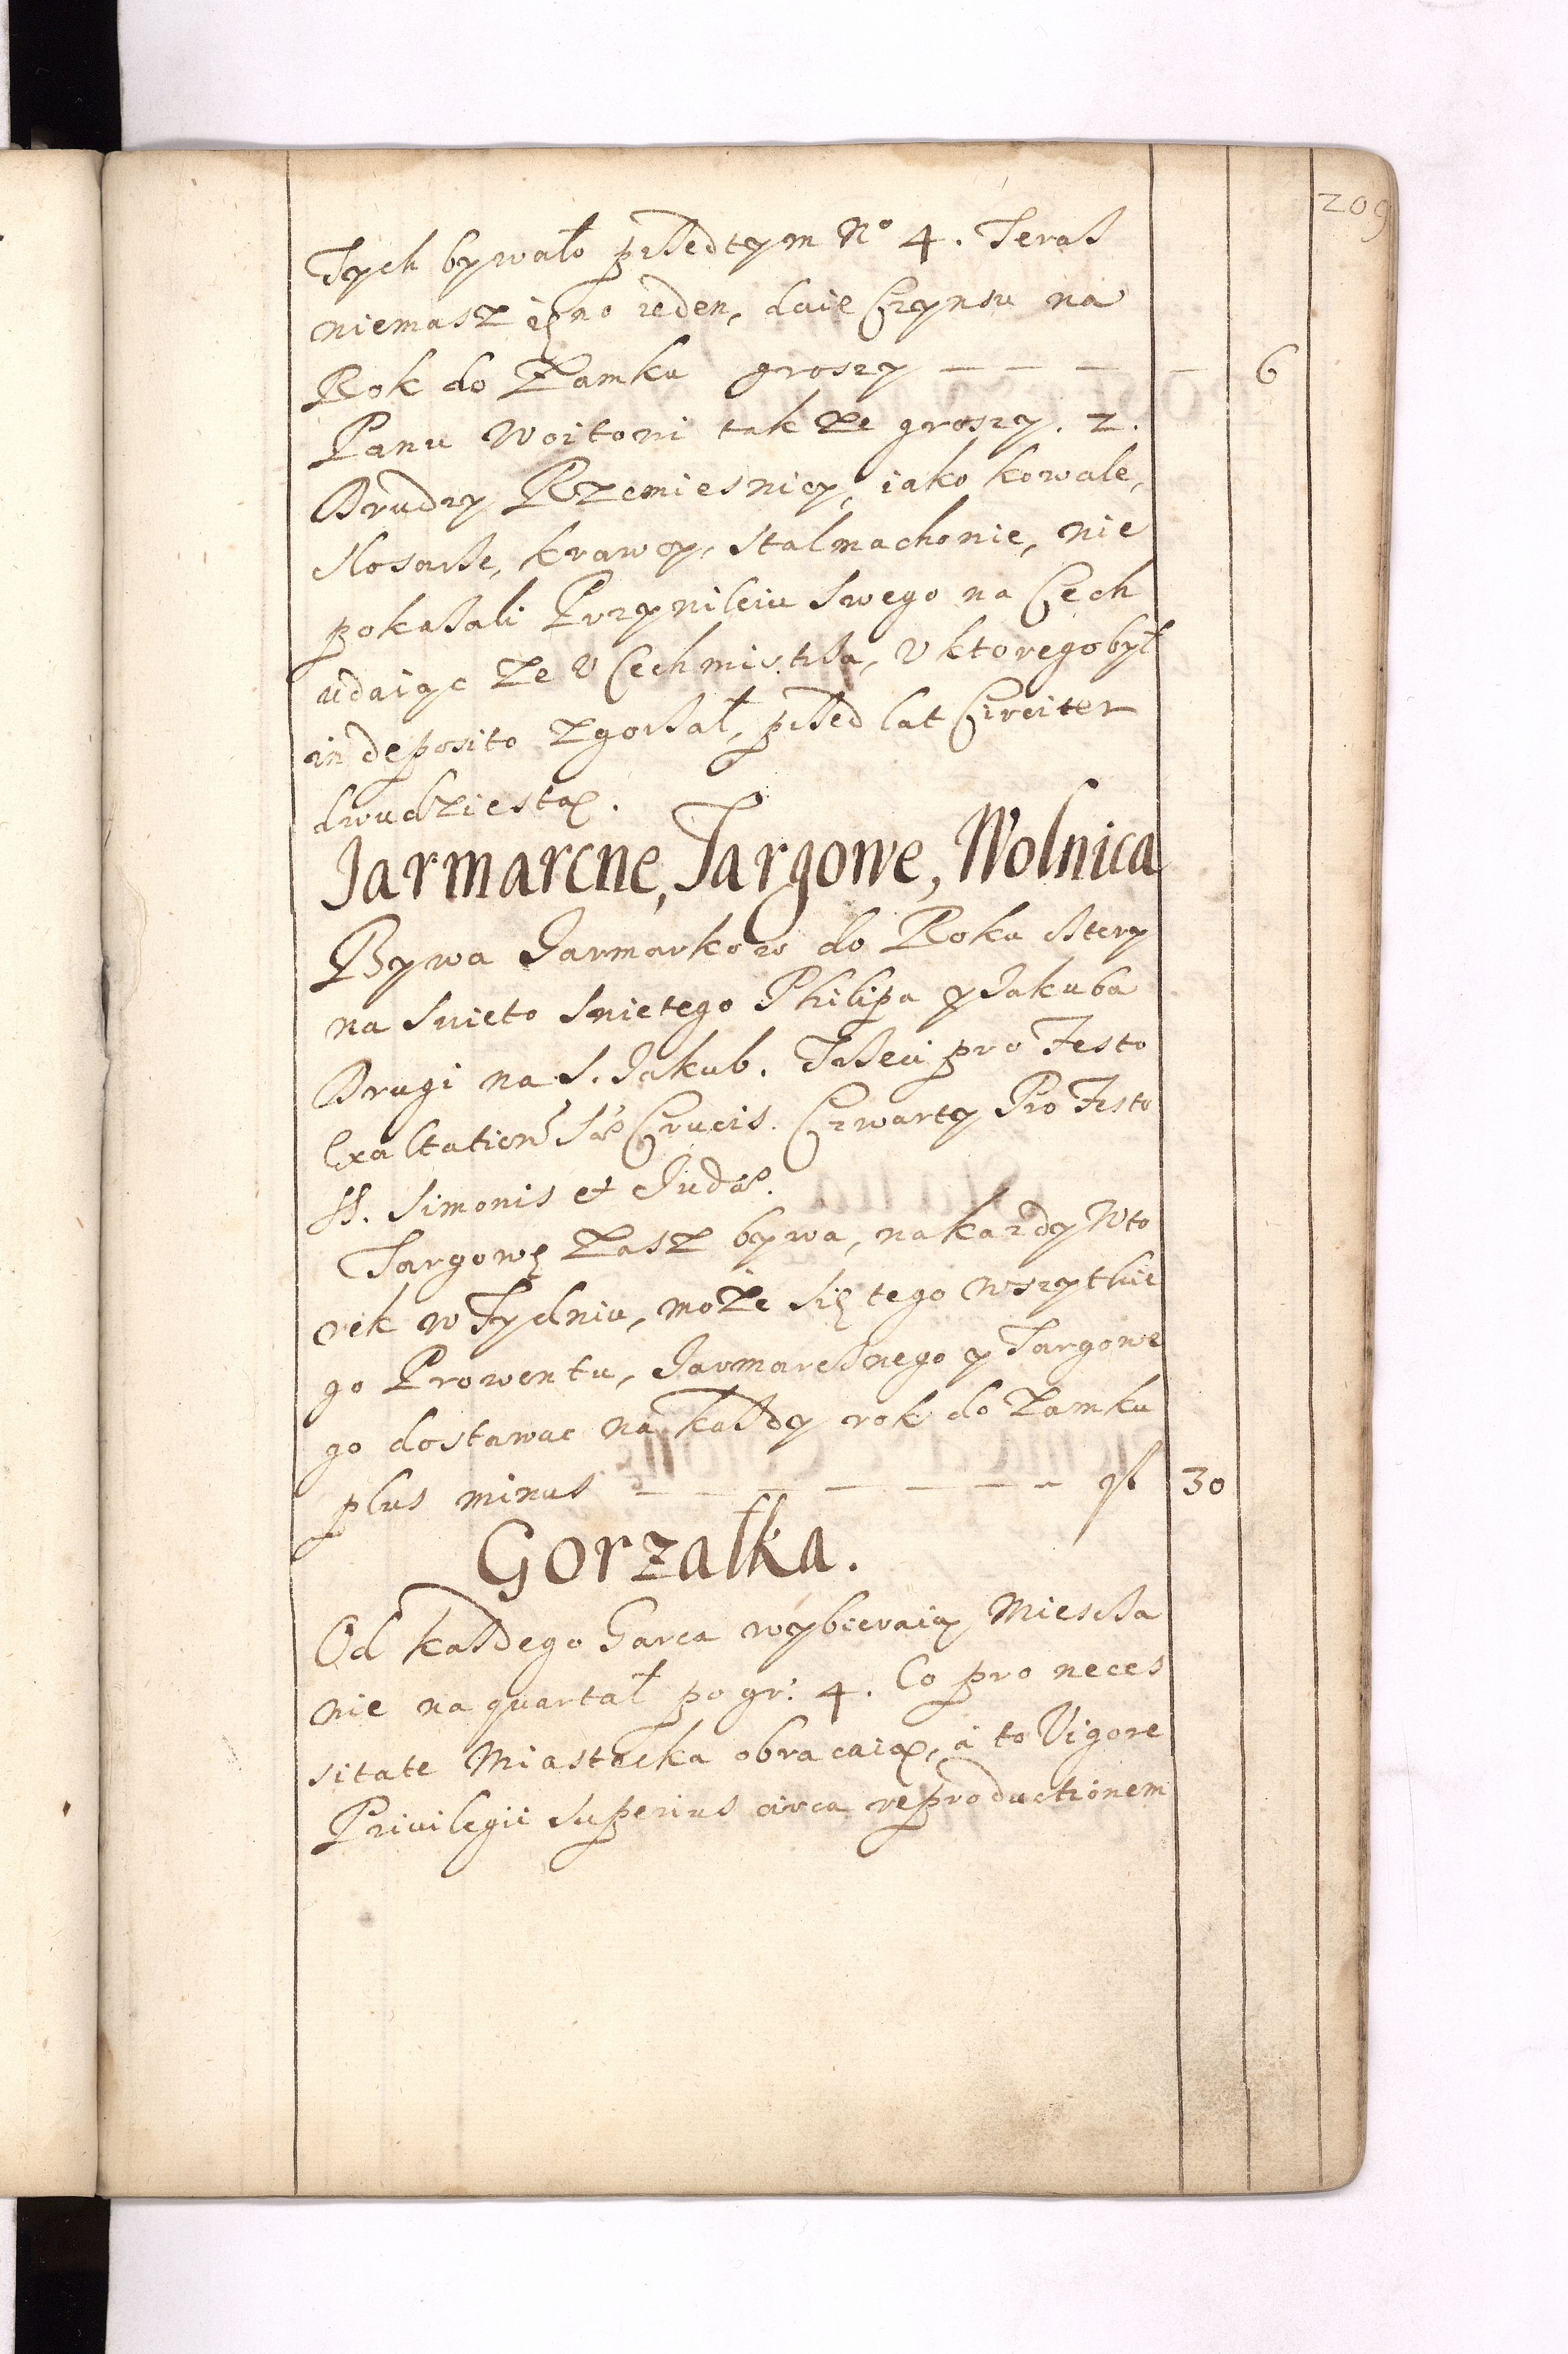 209
Tych bywało przedtym No 4. Teras
niemasz ięno ieden, daie Czynsu na
Rok do Zamku groszy — — — — 6
Panu Woitowi takze groszy. 2.
Drudzy Rzemiesnicy, iako kowale,
slosarze, krawcy, stalmachowie, nie
pokazali Przywileiu swego na Cech
udaiąc ze v Cechmistrza, v ktorego był
in deposito zgorzał, przed lat Circiter
dwudziestą.
Jarmarcne, Targowe, Wolnica
Bywa Jarmarkow do Roku cztery
na swieto swietego Philipa y Jakuba
Drugi na S. Jakub. Trzeci pro Festo
Exaltation Sæ Crucis. Czwarty Pro Festo
SS. Simonis et Judæ.
Targowę zasz bywa, na kazdy Wto
rek w Tydniu, może się tego wszytkie
go Prowentu, Jarmarcznego y Targowe
go dostawac na każdy rok do Zamku
plus minus — — — — — — — fl 30
Gorzałka.
Od każdego Garca wybieraią Miescza
nie na quartał po gr: 4. Co pro neces
sitate Miastecka obracaią, á to Vigore
Privilegii superius circa reproductionem